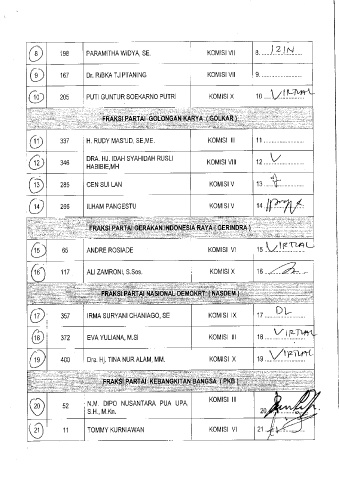 8 198 PARAMITHA WIDYA, SE. KOMISI VII 8. IZIN
9 167 Dr. RIBKA TJIPTANING KOMISI VII 9.
10 205 PUTI GUNTUR SOEKARNO PUTRI KOMISI X 10. VIRTUAL
FRAKSI PARTAI GOLONGAN KARYA ( GOLKAR )
11 337 H. RUDY MAS'UD, SE,ME. KOMISI III 11.
12 346 DRA. HJ. IDAH SYAHIDAH RUSLI HABIBIE,MH KOMISI VIII 12. V
13 285 CEN SUI LAN KOMISI V 13.
14 266 ILHAM PANGESTU KOMISI V 14.
FRAKSI PARTAI GERAKAN INDONESIA RAYA ( GERINDRA )
15 65 ANDRE ROSIADE KOMISI VI 15. VIRTUAL
16 117 ALI ZAMRONI, S.Sos. KOMISI X 16.
FRAKSI PARTAI NASIONAL DEMOKRT ( NASDEM )
17 357 IRMA SURYANI CHANIAGO, SE KOMISI IX 17. DL
18 372 EVA YULIANA, M.SI KOMISI III 18. VIRTUAL
19 400 Dra. Hj. TINA NUR ALAM, MM. KOMISI X 19. VIRTUAL
FRAKSI PARTAI KEBANGKITAN BANGSA ( PKB )
20 52 N.M. DIPO NUSANTARA PUA UPA, S.H., M.Kn. KOMISI III 20.
21 11 TOMMY KURNIAWAN KOMISI VI 21.